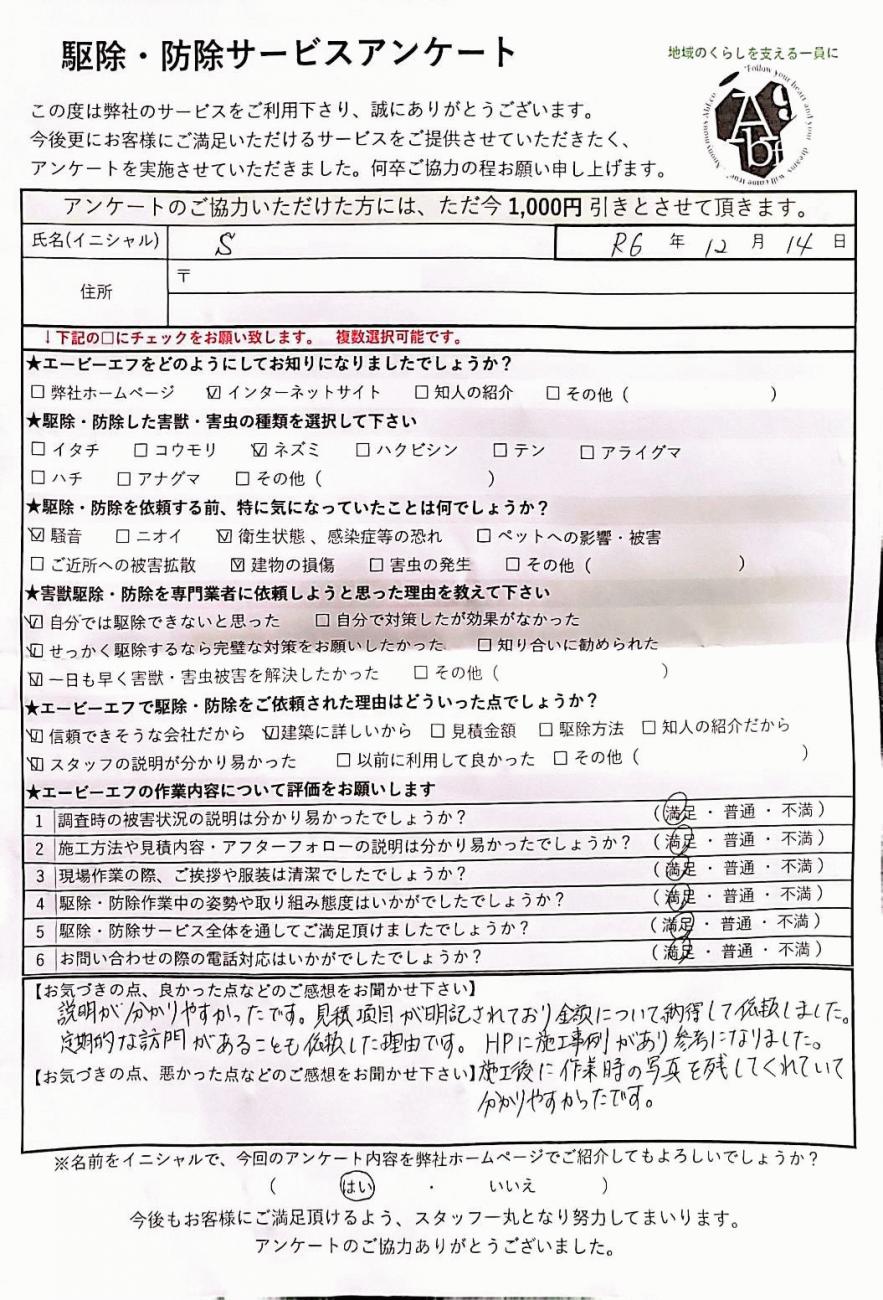 駆除・防除サービスアンケート
地域のくらしを支える一員に
"Follow your heart and your dreams will come true"
Abf
この度は弊社のサービスをご利用下さり、誠にありがとうございます。
今後更にお客様にご満足いただけるサービスをご提供させていただきたく、
アンケートを実施させていただきました。何卒ご協力の程お願い申し上げます。
アンケートのご協力いただけた方には、ただ今 1,000円 引きとさせて頂きます。
氏名(イニシャル) S R6 年 12 月 14 日
住所 〒
↓下記の□にチェックをお願い致します。 複数選択可能です。
★エービーエフをどのようにしてお知りになりましたでしょうか？
□ 弊社ホームページ ☑ インターネットサイト □ 知人の紹介 □ その他（ ）
★駆除・防除した害獣・害虫の種類を選択して下さい
□ イタチ □ コウモリ ☑ ネズミ □ ハクビシン □ テン □ アライグマ
□ ハチ □ アナグマ □ その他（ ）
★駆除・防除を依頼する前、特に気になっていたことは何でしょうか？
☑ 騒音 □ ニオイ ☑ 衛生状態 、感染症等の恐れ □ ペットへの影響・被害
□ ご近所への被害拡散 ☑ 建物の損傷 □ 害虫の発生 □ その他（ ）
★害獣駆除・防除を専門業者に依頼しようと思った理由を教えて下さい
☑ 自分では駆除できないと思った □ 自分で対策したが効果がなかった
☑ せっかく駆除するなら完璧な対策をお願いしたかった □ 知り合いに勧められた
☑ 一日も早く害獣・害虫被害を解決したかった □ その他（ ）
★エービーエフで駆除・防除をご依頼された理由はどういった点でしょうか？
☑ 信頼できそうな会社だから ☑ 建築に詳しいから □ 見積金額 □ 駆除方法 □ 知人の紹介だから
☑ スタッフの説明が分かり易かった □ 以前に利用して良かった □ その他（ ）
★エービーエフの作業内容について評価をお願いします
1 調査時の被害状況の説明は分かり易かったでしょうか？ （ 満足 ・ 普通 ・ 不満 ）
2 施工方法や見積内容・アフターフォローの説明は分かり易かったでしょうか？ （ 満足 ・ 普通 ・ 不満 ）
3 現場作業の際、ご挨拶や服装は清潔でしたでしょうか？ （ 満足 ・ 普通 ・ 不満 ）
4 駆除・防除作業中の姿勢や取り組み態度はいかがでしたでしょうか？ （ 満足 ・ 普通 ・ 不満 ）
5 駆除・防除サービス全体を通してご満足頂けましたでしょうか？ （ 満足 ・ 普通 ・ 不満 ）
6 お問い合わせの際の電話対応はいかがでしたでしょうか？ （ 満足 ・ 普通 ・ 不満 ）
【お気づきの点、良かった点などのご感想をお聞かせ下さい】
説明が分かりやすかったです。見積項目が明記されており金額について納得して依頼しました。
定期的な訪問があることも依頼した理由です。 HPに施工事例があり参考になりました。
【お気づきの点、悪かった点などのご感想をお聞かせ下さい】施工後に作業時の写真を残してくれていて
分かりやすかったです。
※名前をイニシャルで、今回のアンケート内容を弊社ホームページでご紹介してもよろしいでしょうか？
（ はい ・ いいえ ）
今後もお客様にご満足頂けるよう、スタッフ一丸となり努力してまいります。
アンケートのご協力ありがとうございました。